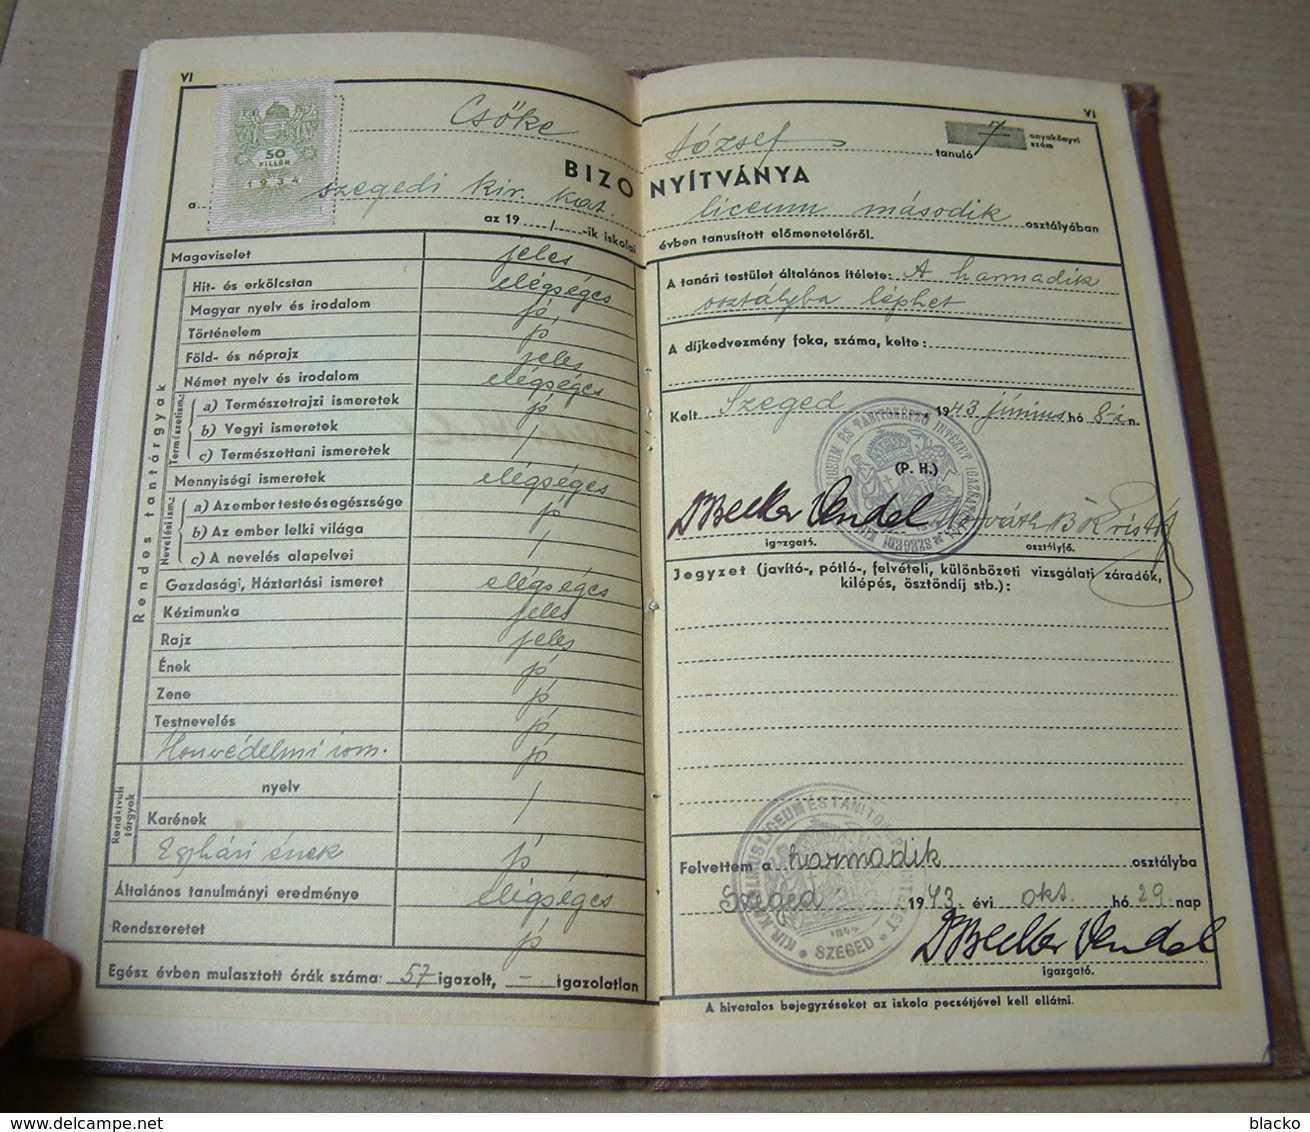 VI
50
FILLÉR
1934
Csőke
BIZO
a szegedi kir. kat.
az 19 /-ik iskolai
Magaviselet jeles
Rendes tantárgyak
Hit- és erkölcstan elégséges
Magyar nyelv és irodalom jó,
Történelem jó
Föld- és néprajz jeles
Német nyelv és irodalom elégséges
Természetism.:
a) Természetrajzi ismeretek jó
b) Vegyi ismeretek /
c) Természettani ismeretek
Mennyiségi ismeretek elégséges
Nevelési ism.:
a) Az ember teste és egészsége jó
b) Az ember lelki világa /
c) A nevelés alapelvei
Gazdasági, Háztartási ismeret elégséges
Kézimunka jeles
Rajz jeles
Ének jó,
Zene jó
Testnevelés jó,
Honvédelmi ism. jó
Rendkívüli tárgyak
nyelv /
Karének
Egyházi ének jó
Általános tanulmányi eredménye elégséges
Rendszeretet jó
Egész évben mulasztott órák száma: 57 igazolt, – igazolatlan
VI
József tanuló 7 anyakönyvi szám
NYÍTVÁNYA
líceum második osztályában
évben tanusított előmeneteléről.
A tanári testület általános ítélete: A harmadik
osztályba léphet
A díjkedvezmény foka, száma, kelte:
Kelt Szeged, 1943 június hó 8-án.
LÍCEUM ÉS TANÍTÓKÉPZŐ INTÉZET IGAZGATÓJA
SZEGEDI KIR.
(P. H.)
Dr Becker Vendel Horváth B Kristóf
igazgató. osztályfő.
Jegyzet (javító-, pótló-, felvételi, különbözeti vizsgálati záradék,
kilépés, ösztöndíj stb.):
Felvettem a harmadik osztályba
Szeged 1943. évi okt. hó 29. nap
SZEGED
Dr Becker Vendel
igazgató.
A hivatalos bejegyzéseket az iskola pecsétjével kell ellátni.
delcampe.net
blacko